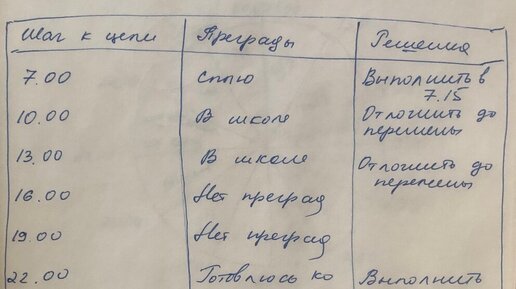 Шаг к цели Преграды Решения
7.00 Сплю Выполнить в 7.15
10.00 В школе Отложить до перемены
13.00 В школе Отложить до перемены
16.00 Нет преград
19.00 Нет преград
22.00 Готовлюсь ко Выполнить